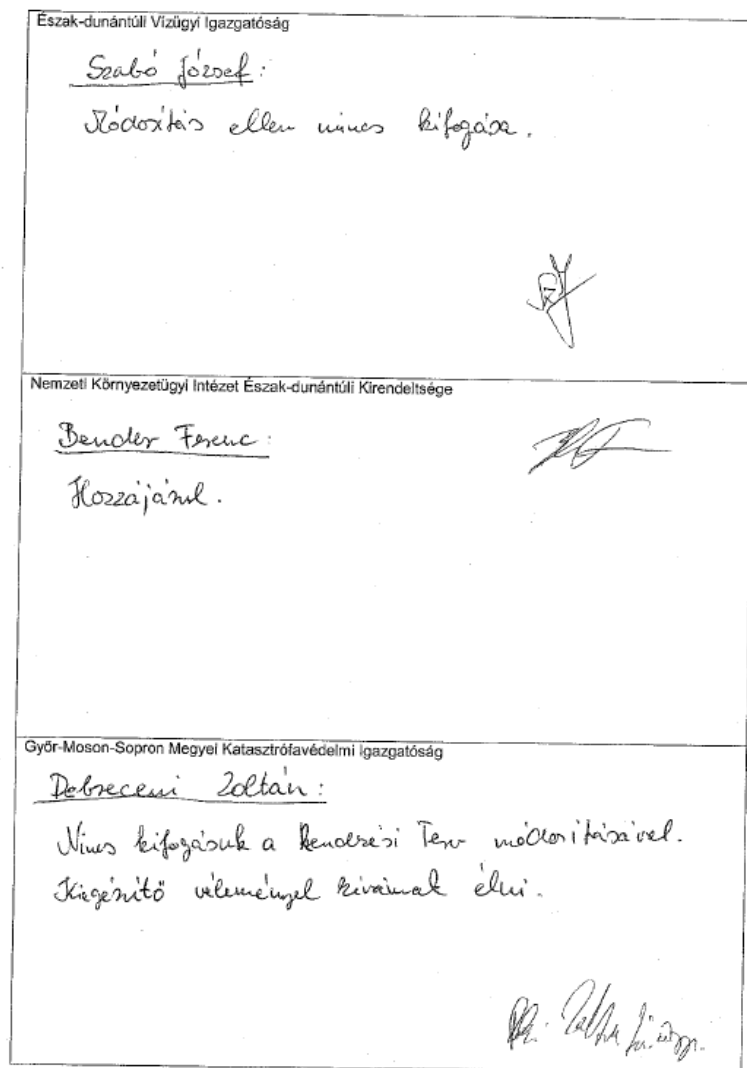 Észak-dunántúli Vízügyi Igazgatóság
Szabó József:
Módosítás ellen nincs kifogása.
Nemzeti Környezetügyi Intézet Észak-dunántúli Kirendeltsége
Bender Ferenc:
Hozzájárul.
Győr-Moson-Sopron Megyei Katasztrófavédelmi Igazgatóság
Debreceni Zoltán:
Nincs kifogásuk a Rendezési Terv módosításával.
Kiegészítő véleménnyel kívánnak élni.